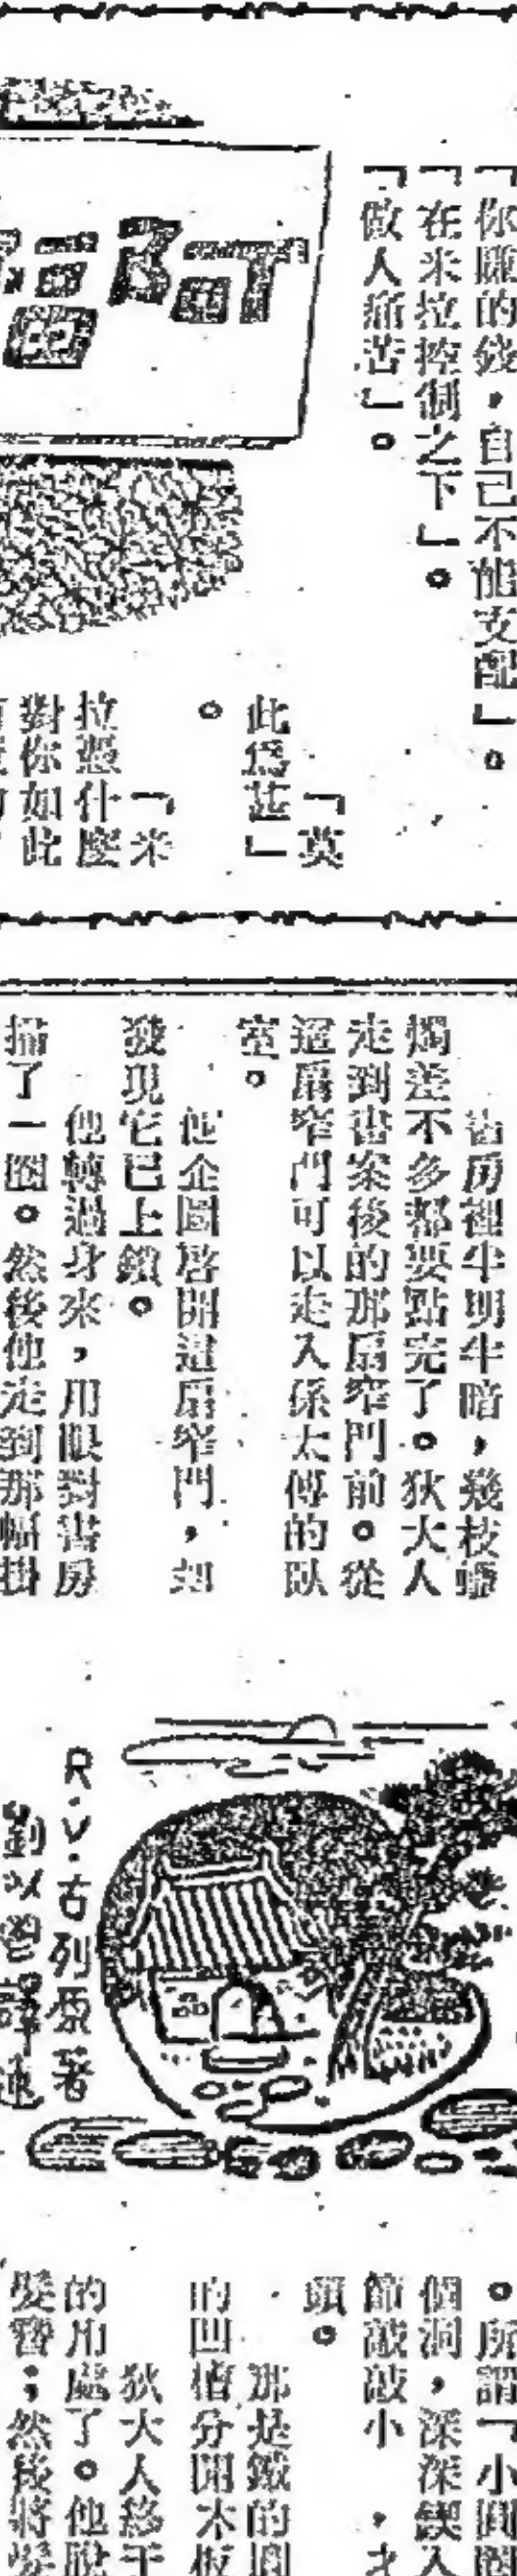 「你賺的錢，自己不能支配」。
「在米拉控制之下」。
「做人痛苦」。
「英
此爲甚」
。
「米
拉憑什麼
對你如此
書房裡半明半暗，幾枝蠟
燭差不多都要點完了。狄大人
走到書案後的那扇窄門前。從
這扇窄門可以走入孫太傅的臥
室。
他企圖啓開這扇窄門，却
發現它已上鎖。
他轉過身來，用眼對書房
掃了一圈。然後他走到那幅掛
R.V.古列原著
劉以鬯譯述
。所謂「小圓圈
個洞，深深鍥入
節敲敲小，才
頭。
那是鐵的圓
的凹槽分開木板
狄大人移手
的用處了。他脫
髮簪；然後將髮